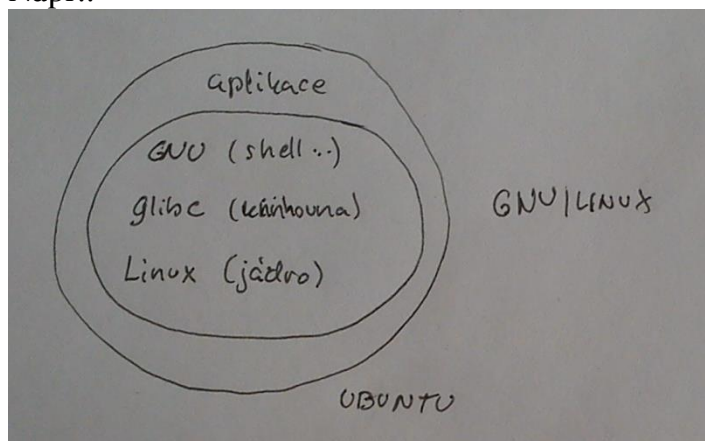 aplikace
GNU (shell..)
glibc (knihovna)
Linux (jádro)
GNU|LINUX
UBUNTU